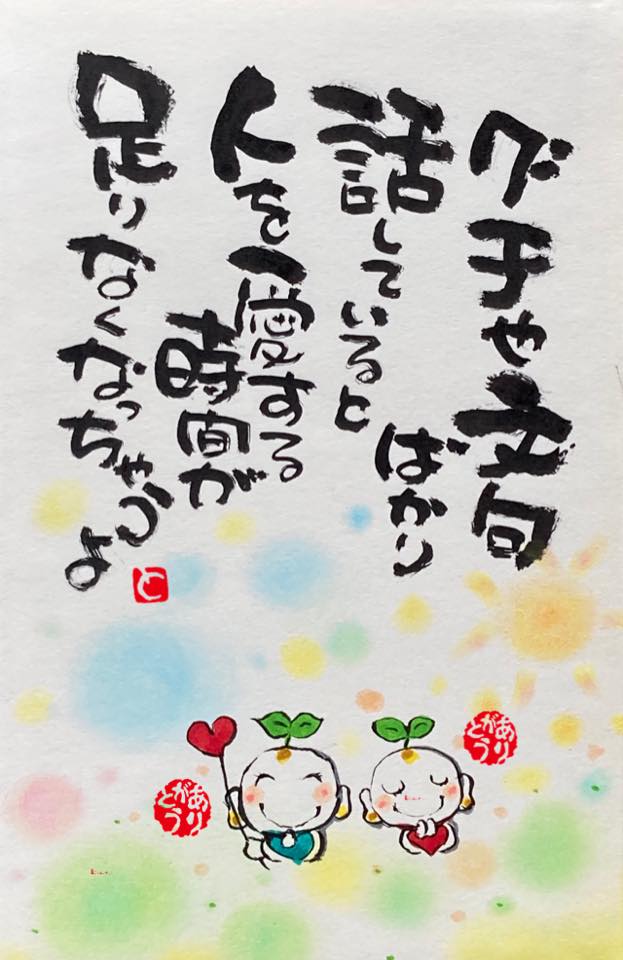 グチや文句
ばかり
話していると
人を愛する
時間が
足りなくなっちゃうよ
と
ありがとう
ありがとう